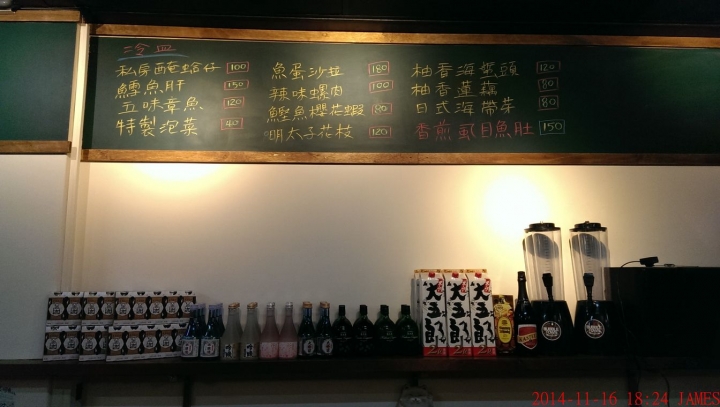 冷皿
私房醃蛤仔 100
鱈魚肝 150
五味章魚 120
特製泡菜 40
魚蛋沙拉 180
辣味螺肉 100
鰹魚櫻花蝦 80
明太子花枝 120
柚香海蜇頭 120
柚香蓮藕 80
日式海帶芽 80
香煎虱目魚肚 150
大五郎
大五郎
大五郎
2014-11-16 18:24 JAMES